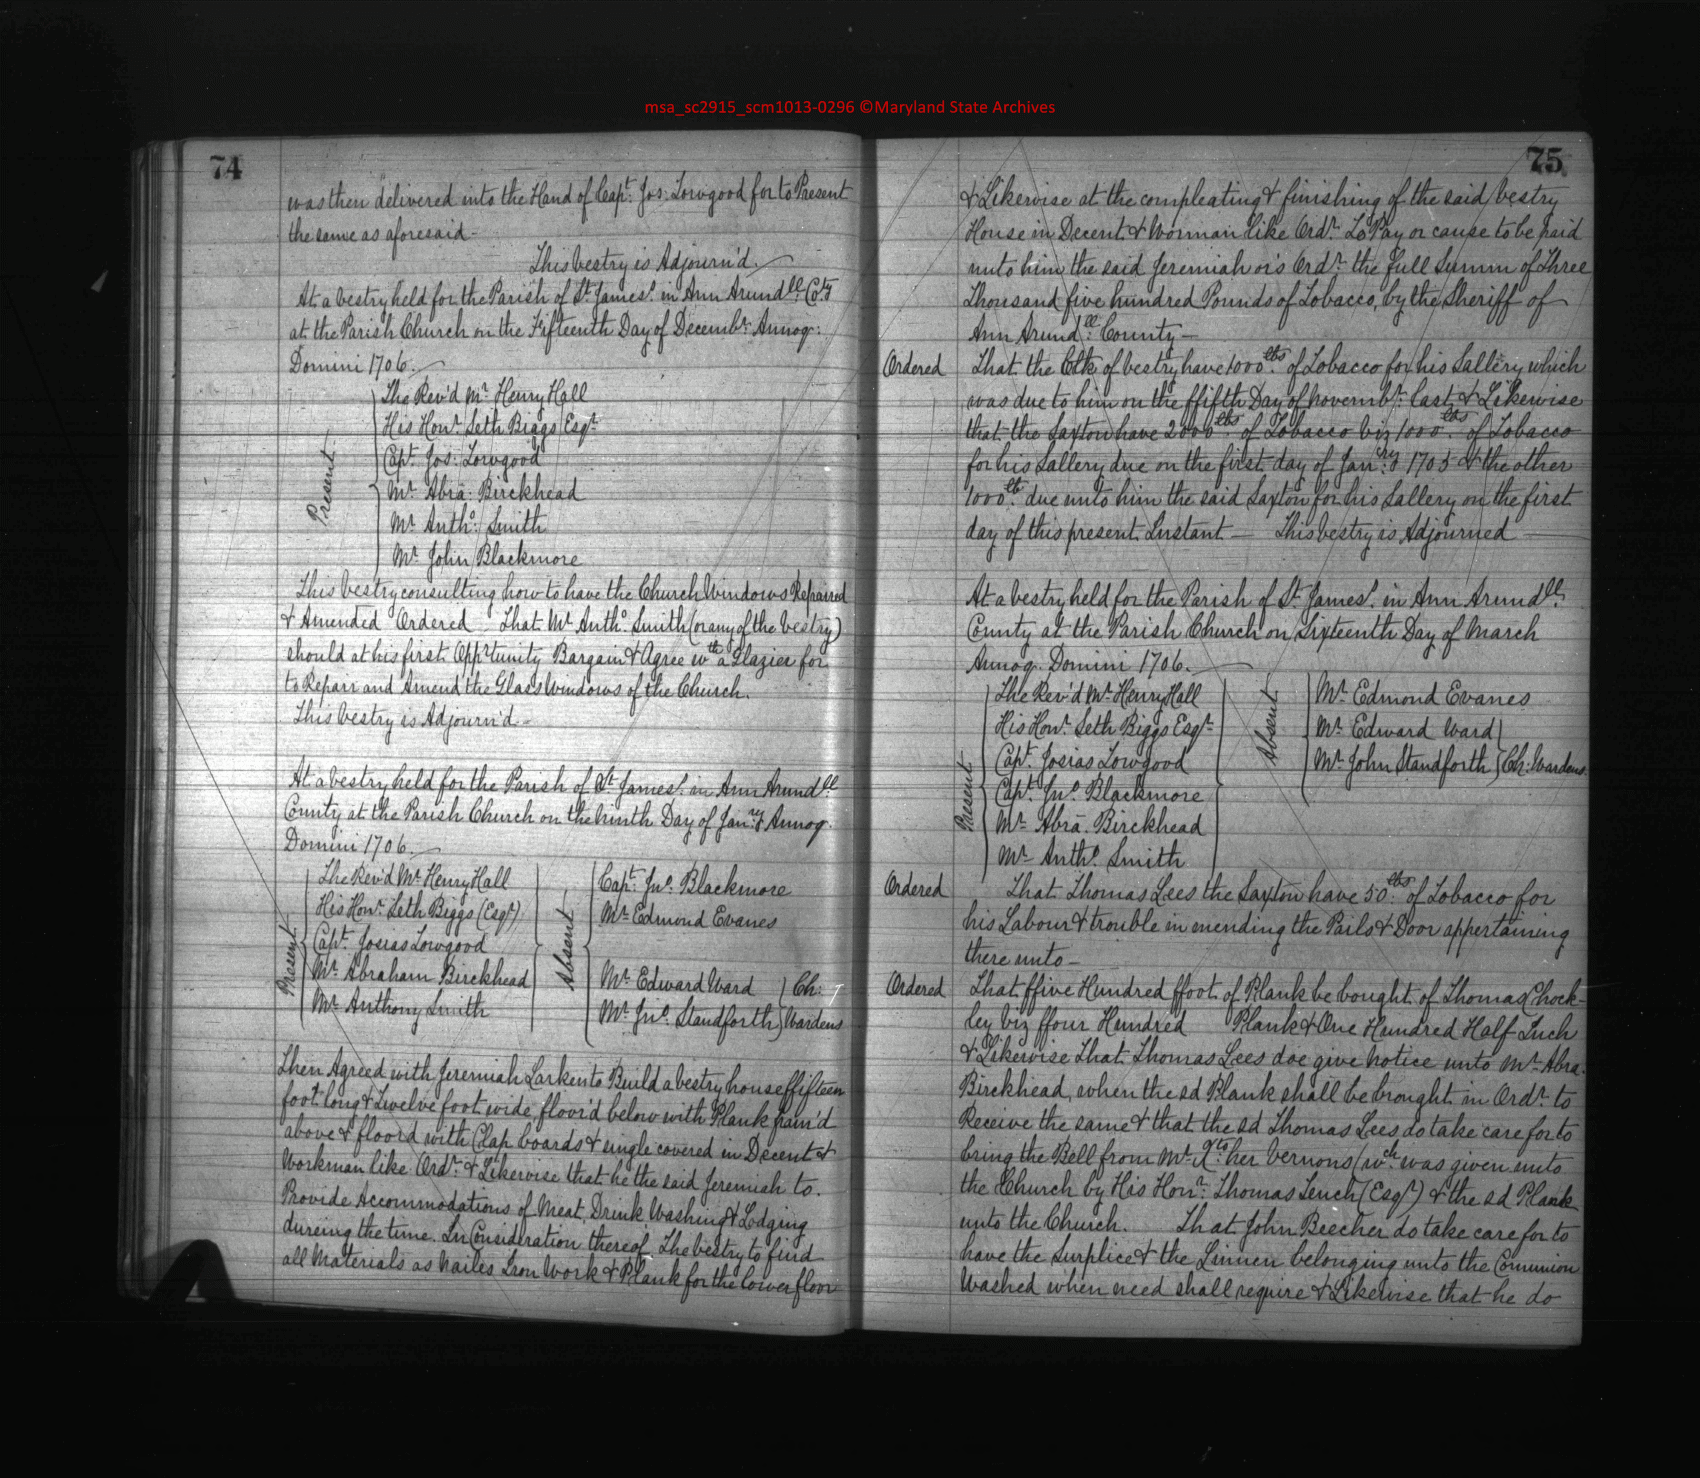 msa_sc2915_scm1013-0296 ©Maryland State Archives
74
was then delivered into the Hand of Capt. Jos: Lowgood for to Present
the same as aforesaid –
This Vestry is Adjourn'd. –
At a Vestry held for the Parish of St. James's. in Ann Arundll. Coty
at the Parish Church on the Fifteenth Day of Decembr. Annoq:
Domini 1706. –
Present
The Rev'd Mr. Henry Hall
His Honr. Seth Biggs Esqr.
Capt. Jos: Lowgood
Mr. Abra: Birckhead
Mr. Antho: Smith
Mr. John Blackmore
This Vestry consulting how to have the Church Windows Repaired
& Amended Ordered – That Mr. Antho. Smith (or any of the Vestry)
should at his first Opprtunity Bargain & Agree wth a Glazier for
to Repair and Amend the Glass Windows of the Church.
This Vestry is Adjourn'd –
At a Vestry held for the Parish of St. James's. in Ann Arundll.
County at the Parish Church on the Ninth Day of Janry Annoq.
Domini 1706. –
Present
The Rev'd Mr. Henry Hall
His Honr. Seth Biggs (Esqr.)
Capt. Josias Lowgood
Mr. Abraham Birckhead
Mr. Anthony Smith
Absent
Capt. Jno. Blackmore
Mr. Edmond Evanes
Mr. Edward Ward } Ch:
Mr. Jno. Standforth } Wardens
Then Agreed with Jeremiah Larken to Build a Vestry house ffifteen
foot long & Twelve foot wide, floor'd below with Plank fram'd
above & floord with Clap boards & single covered in Decent &
Workman like Ordr. & Likewise that he the said Jeremiah to.
Provide Accommodations of Meat, Drink Washing & Lodging
dureing the time. In Consideration thereof. The Vestry to find
all Materials as Nailes Iron Work & Plank for the lower floor
75
& Likewise at the compleating & finishing of the said Vestry
House in Decent & Worman like Ordr. To Pay or cause to be paid
unto him the said Jeremiah or's Ordr. the full Summ of Three
Thousand five hundred Pounds of Tobacco, by the Sheriff of
Ann Arundll. County –
Ordered That the Clk of Vestry have 1000lbs. of Tobacco for his Sallery which
was due to him on the ffifth Day of Novembr. last & Likewise
that the Saxton have 2000lbs. of Tobacco viz 1000lbs. of Tobacco
for his Sallery due on the first day of Janry 1705 & the other
1000lb. due unto him the said Saxton for his Sallery on the first
day of this present Instant — This Vestry is Adjourned —
At a Vestry held for the Parish of St. James's. in Ann Arundll.
County at the Parish Church on Sixteenth Day of March
Annoq. Domini 1706. –
Present
The Rev'd Mr. Henry Hall
His Honr. Seth Biggs Esqr.
Capt. Josias Lowgood
Capt. Jno. Blackmore
Mr. Abra. Birckhead
Mr. Antho. Smith
Absent
Mr. Edmond Evanes
Mr. Edward Ward }
Mr. John Standforth } Ch: Wardens
Ordered That Thomas Lees the Saxton have 50lbs. of Tobacco for
his Labour & trouble in mending the Pails & Door appertaining
there unto –
Ordered That ffive Hundred ffoot of Plank be bought of Thomas Chock-
ley viz ffour Hundred Plank & One Hundred Half Inch
& Likewise That Thomas Lees doe give Notice unto Mr. Abra.
Birckhead, when the sd Plank shall be brought in Ordr. to
Receive the same & that the sd Thomas Lees do take care for to
bring the Bell from Mr. her Vernons (wch. was given unto
the Church by His Honr. Thomas Tench (Esqr.) & the sd Plank
unto the Church. That John Beecher do take care for to
have the Surplice & the Linnen belonging unto the Comunion
Washed when need shall require & Likewise that he do